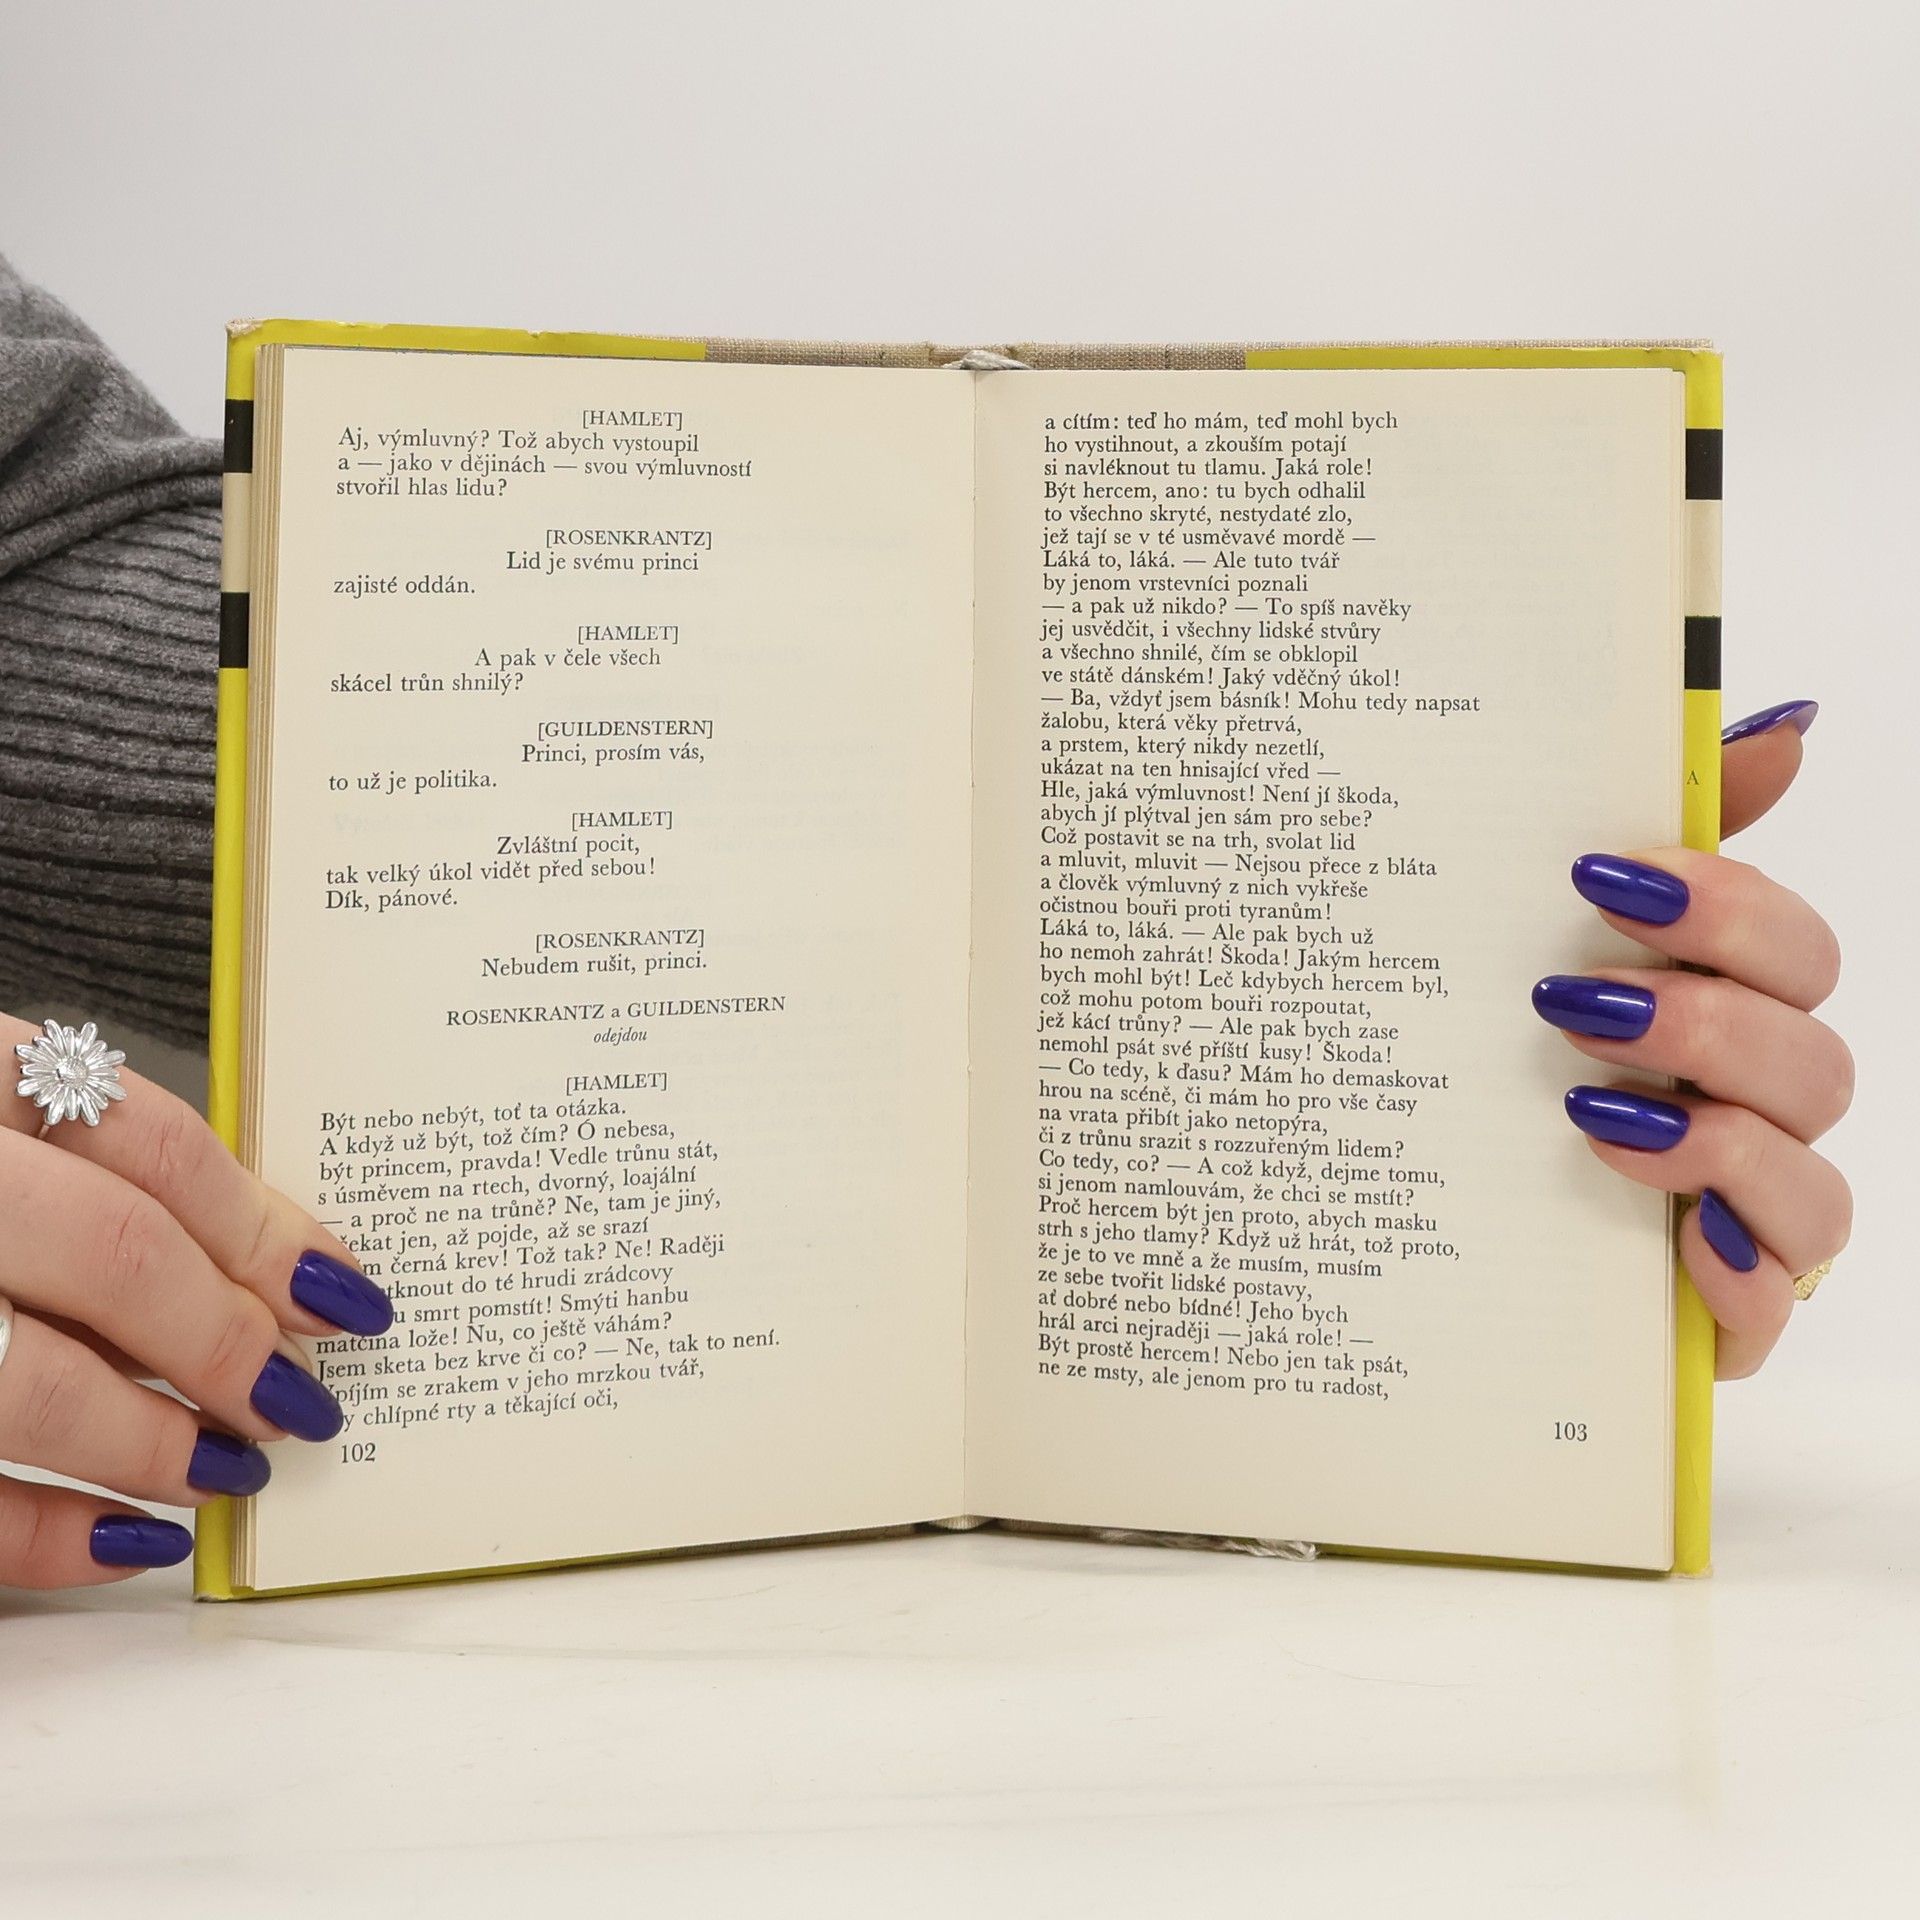 [HAMLET]
Aj, výmluvný? Tož abych vystoupil
a — jako v dějinách — svou výmluvností
stvořil hlas lidu?
[ROSENKRANTZ]
Lid je svému princi
zajisté oddán.
[HAMLET]
A pak v čele všech
skácel trůn shnilý?
[GUILDENSTERN]
Princi, prosím vás,
to už je politika.
[HAMLET]
Zvláštní pocit,
tak velký úkol vidět před sebou!
Dík, pánové.
[ROSENKRANTZ]
Nebudem rušit, princi.
ROSENKRANTZ a GUILDENSTERN
odejdou
[HAMLET]
Být nebo nebýt, toť ta otázka.
A když už být, tož čím? Ó nebesa,
být princem, pravda! Vedle trůnu stát,
s úsměvem na rtech, dvorný, loajální
— a proč ne na trůně? Ne, tam je jiný,
jen, až pojde, až se srazí
černá krev! Tož tak? Ne! Raději
do té hrudi zrádcovy
smrt pomstít! Smýti hanbu
matčina lože! Nu, co ještě váhám?
Jsem sketa bez krve či co? — Ne, tak to není.
Vpíjím se zrakem v jeho mrzkou tvář,
chlípné rty a těkající oči,
102
a cítím: teď ho mám, teď mohl bych
ho vystihnout, a zkouším potají
si navléknout tu tlamu. Jaká role!
Být hercem, ano: tu bych odhalil
to všechno skryté, nestydaté zlo,
jež tají se v té usměvavé mordě —
Láká to, láká. — Ale tuto tvář
by jenom vrstevníci poznali
— a pak už nikdo? — To spíš navěky
jej usvědčit, i všechny lidské stvůry
a všechno shnilé, čím se obklopil
ve státě dánském! Jaký vděčný úkol!
— Ba, vždyť jsem básník! Mohu tedy napsat
žalobu, která věky přetrvá,
a prstem, který nikdy nezetlí,
ukázat na ten hnisající vřed —
Hle, jaká výmluvnost! Není jí škoda,
abych jí plýtval jen sám pro sebe?
Což postavit se na trh, svolat lid
a mluvit, mluvit — Nejsou přece z bláta
a člověk výmluvný z nich vykřeše
očistnou bouři proti tyranům!
Láká to, láká. — Ale pak bych už
ho nemoh zahrát! Škoda! Jakým hercem
bych mohl být! Leč kdybych hercem byl,
což mohu potom bouři rozpoutat,
jež kácí trůny? — Ale pak bych zase
nemohl psát své příští kusy! Škoda!
— Co tedy, k ďasu? Mám ho demaskovat
hrou na scéně, či mám ho pro vše časy
na vrata přibít jako netopýra,
či z trůnu srazit s rozzuřeným lidem?
Co tedy, co? — A což když, dejme tomu,
si jenom namlouvám, že chci se mstít?
Proč hercem být jen proto, abych masku
strh s jeho tlamy? Když už hrát, tož proto,
že je to ve mně a že musím, musím
ze sebe tvořit lidské postavy,
ať dobré nebo bídné! Jeho bych
hrál arci nejraději — jaká role! —
Být prostě hercem! Nebo jen tak psát,
ne ze msty, ale jenom pro tu radost,
103
A